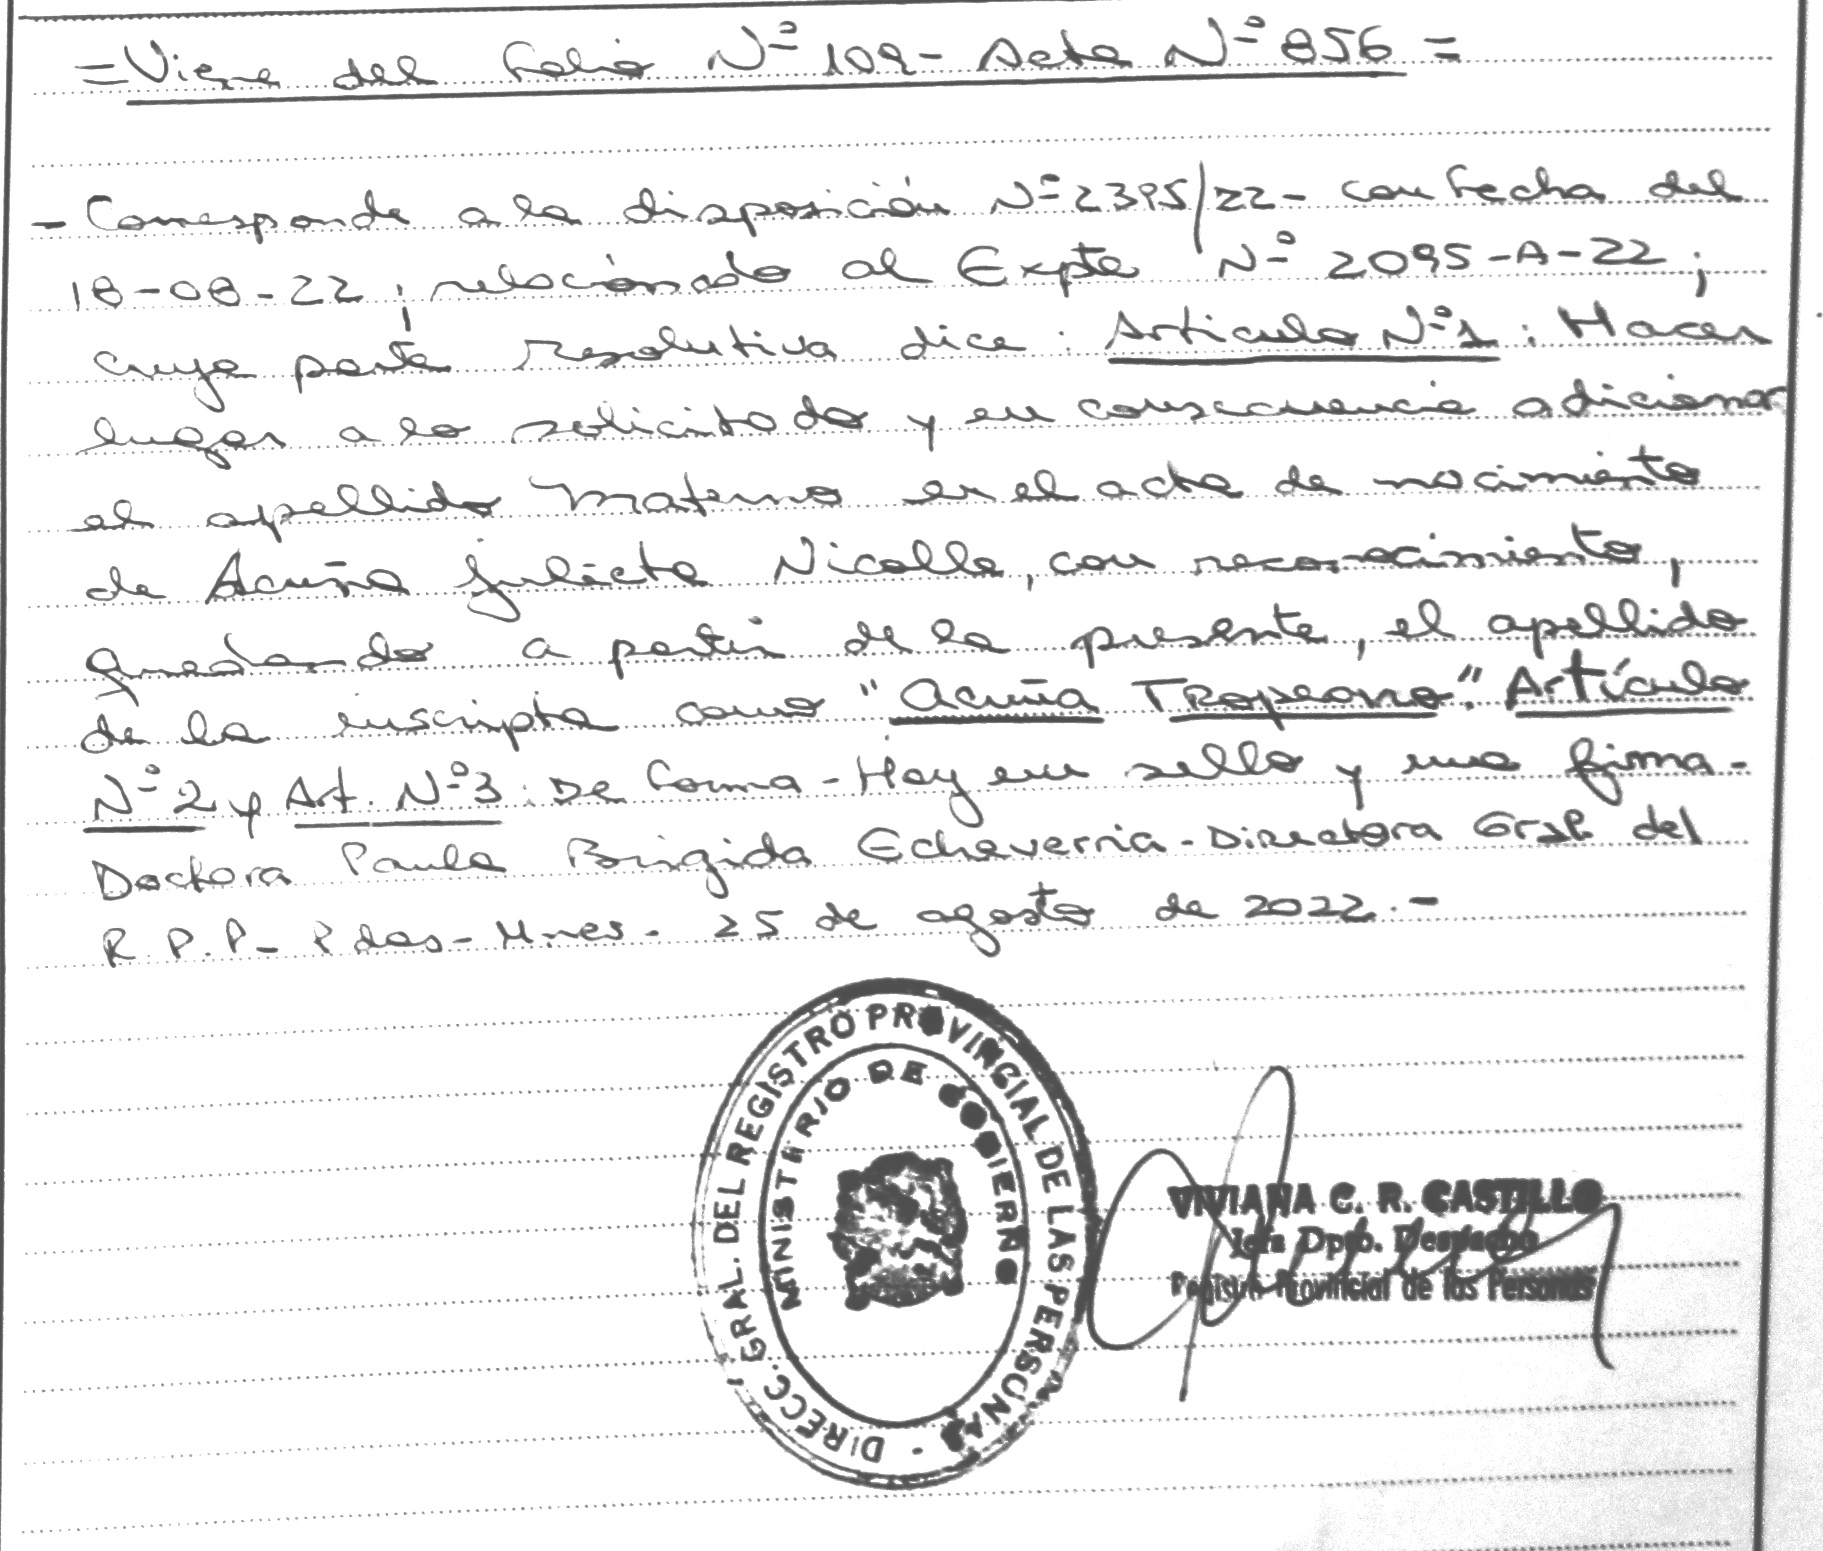 = Viene del folio Nº 109- Acta Nº 856 =
- Corresponde a la disposición Nº 2395/22- con fecha del
18-08-22; relacionado al Expte Nº 2095-A-22;
cuya parte resolutiva dice: Artículo Nº 1: Hacer
lugar a lo solicitado y en consecuencia adicionar
el apellido materno en el acta de nacimiento
de Acuña Julieta Nicolle, con reconocimiento,
quedando a partir de la presente, el apellido
de la inscripta como "Acuña Tropeano". Artículo
Nº 2 y Art. Nº 3: De forma - Hay un sello y una firma-
Doctora Paula Brigida Echeverria - Directora Gral. del
R.P.P- Pdas- Mnes. 25 de agosto de 2022.-
DIRECC. GRAL. DEL REGISTRO PROVINCIAL DE LAS PERSONAS -
MINISTERIO DE GOBIERNO
VIVIANA C. R. CASTILLO
Jefa Dpto. Despacho
Registro Provincial de las Personas